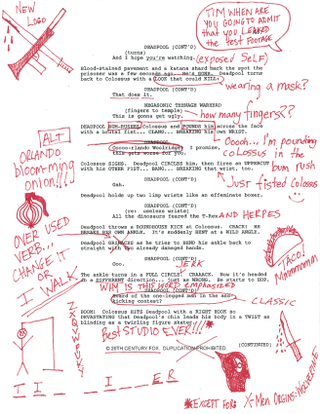 NEW LOGO
TIM WHEN ARE YOU GOING TO ADMIT that you LEAKED the test FOOTAGE
DEADPOOL (CONT'D)
(turns)
And I hope you're watching.
(exposed Self)
Blood-stained pavement and a katana shard back the spot the
prisoner was a few seconds ago. He's GONE. Deadpool turns
back to Colossus with a LOOK that could KILL.
wearing a mask?
DEADPOOL (CONT'D)
That does it.
NEGASONIC TEENAGE WARHEAD
(fingers to text)
This is gonna get ugly.
how many fingers??
DEADPOOL BUM-RUSHES Colossus and POUNDS him across the face
with a brutal fist... CLANG... BREAKING his own WRIST.
ALT
ORLANDO bloom-ming onion!!!
DEADPOOL (CONT'D)
Ooooo-rlando Woolridge! I promise,
this gets worse for you.
Ooooh... I'm pounding colossus in the bum rush
Colossus SIGHS. Deadpool CIRCLES him, then fires an UPPERCUT
with his OTHER FIST... BANG... BREAKING that wrist, too.
Just fisted Colossus
DEADPOOL (CONT'D)
Gah.
Deadpool holds up two limp wrists like an effeminate boxer.
DEADPOOL (CONT'D)
(re: useless wrists)
All the dinosaurs feared the T-Rex.
AND HERPES
OVER USED VERB... CHANGE IT OR I WALK
Deadpool throws a ROUNDHOUSE KICK at Colossus. CRACK! HE
BREAKS HIS OWN ANKLE. It's suddenly BENT at a WILD ANGLE.
Deadpool GRIMACES as he tries to SEND his ankle back to
straight with two already damaged hands.
TACO!
DEADPOOL (CONT'D)
Ooo.
JERK
The ankle turns in a FULL CIRCLE. CRAAACK. Now it's headed
in a DIFFERENT DIRECTION... just as WRONG. He starts to HOP.
WHY IS THIS WORD emphasized
DEADPOOL (CONT'D)
Heard of the one-legged man in the ass-
kicking contest?
CLASSIC
BOOM! Colossus HITS Deadpool with a RIGHT HOOK so
DEVASTATING that Deadpool's chin leads his body in a TWIST as
blinding as a twirling figure skater.
Best STUDIO EVER!!!
© 20TH CENTURY FOX. DUPLICATION PROHIBITED.
(CONTINUED)
EXCEPT FOR X-Men ORGINS: WOLVERINE